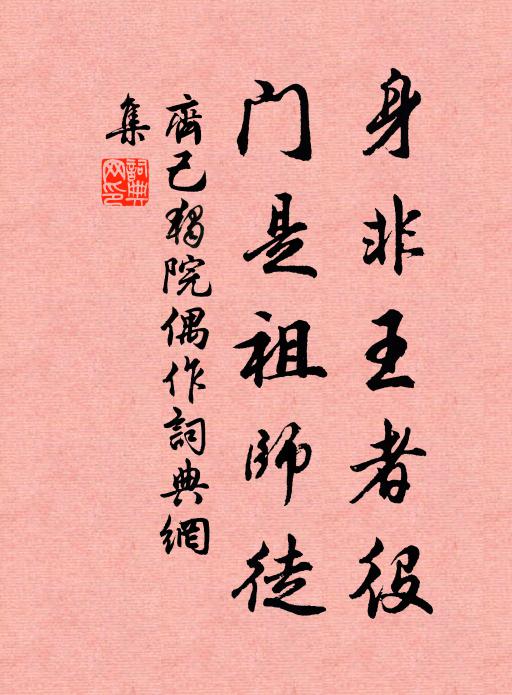 身非王者役
門是祖師徒
齊己獨院偶作詞典網
集
詞典網印